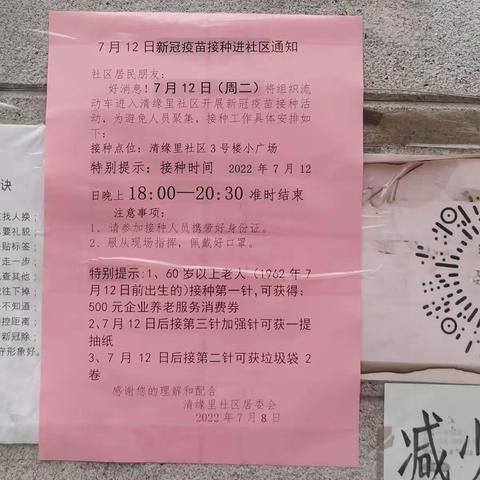 7月12日新冠疫苗接种进社区通知
社区居民朋友：
好消息！7月12日（周二）将组织流
动车进入清缘里社区开展新冠疫苗接种活
动，为避免人员聚集，接种工作具体安排如
下：
接种点位：清缘里社区3号楼小广场
特别提示：接种时间 2022年7月12
日晚上18:00—20:30准时结束
注意事项：
1、请参加接种人员携带好身份证。
2、服从现场指挥，佩戴好口罩。
特别提示:1、60岁以上老人（1962年7
月12日前出生的)接种第一针,可获得:
500元企业养老服务消费券
2、7月12日后接第三针加强针可获一提
抽纸
3、7月12日后接第二针可获垃圾袋2
卷
感谢您的理解和配合
清缘里社区居委会
2022年7月8日
诀
找人换；
要礼貌；
贴标签；
走一步；
查其他；
往下掉；
不知道；
控距离；
新冠除；
守形象好。
减少